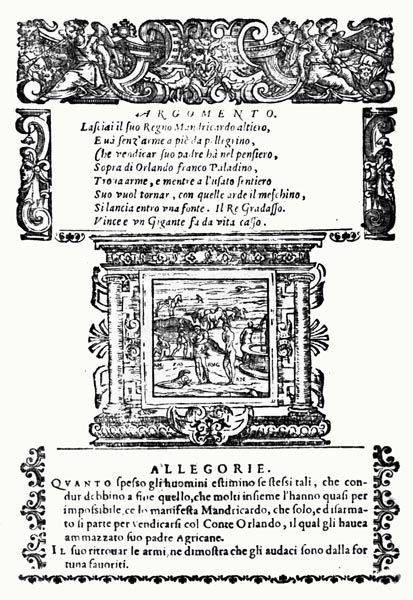 ARGOMENTO.
Lasciai il suo Regno Mandricardo altiero,
E và senz'arme a piè da pellegrino,
Che vendicar suo padre hà nel pensiero,
Sopra di Orlando franco Paladino,
Troua arme, e mentre a l'usato sentiero
Suo vuol tornar, con quelle arde il meschino,
Si lancia entro vna fonte. Il Re Gradasso.
Vince e vn Gigante fa da vita casso.
ALLEGORIE.
QVANTO spesso gli huomini estimino se stessi tali, che con-
dur debbino a fine quello, che molti insieme l'hanno quasi per
impossibile, ce lo manifesta Mandricardo, che solo, e disarma-
to si parte per vendicarsi col Conte Orlando, il qual gli hauea
ammazzato suo padre Agricane.
IL suo ritrouar le armi, ne dimostra che gli audaci sono dalla for
tuna fauoriti.